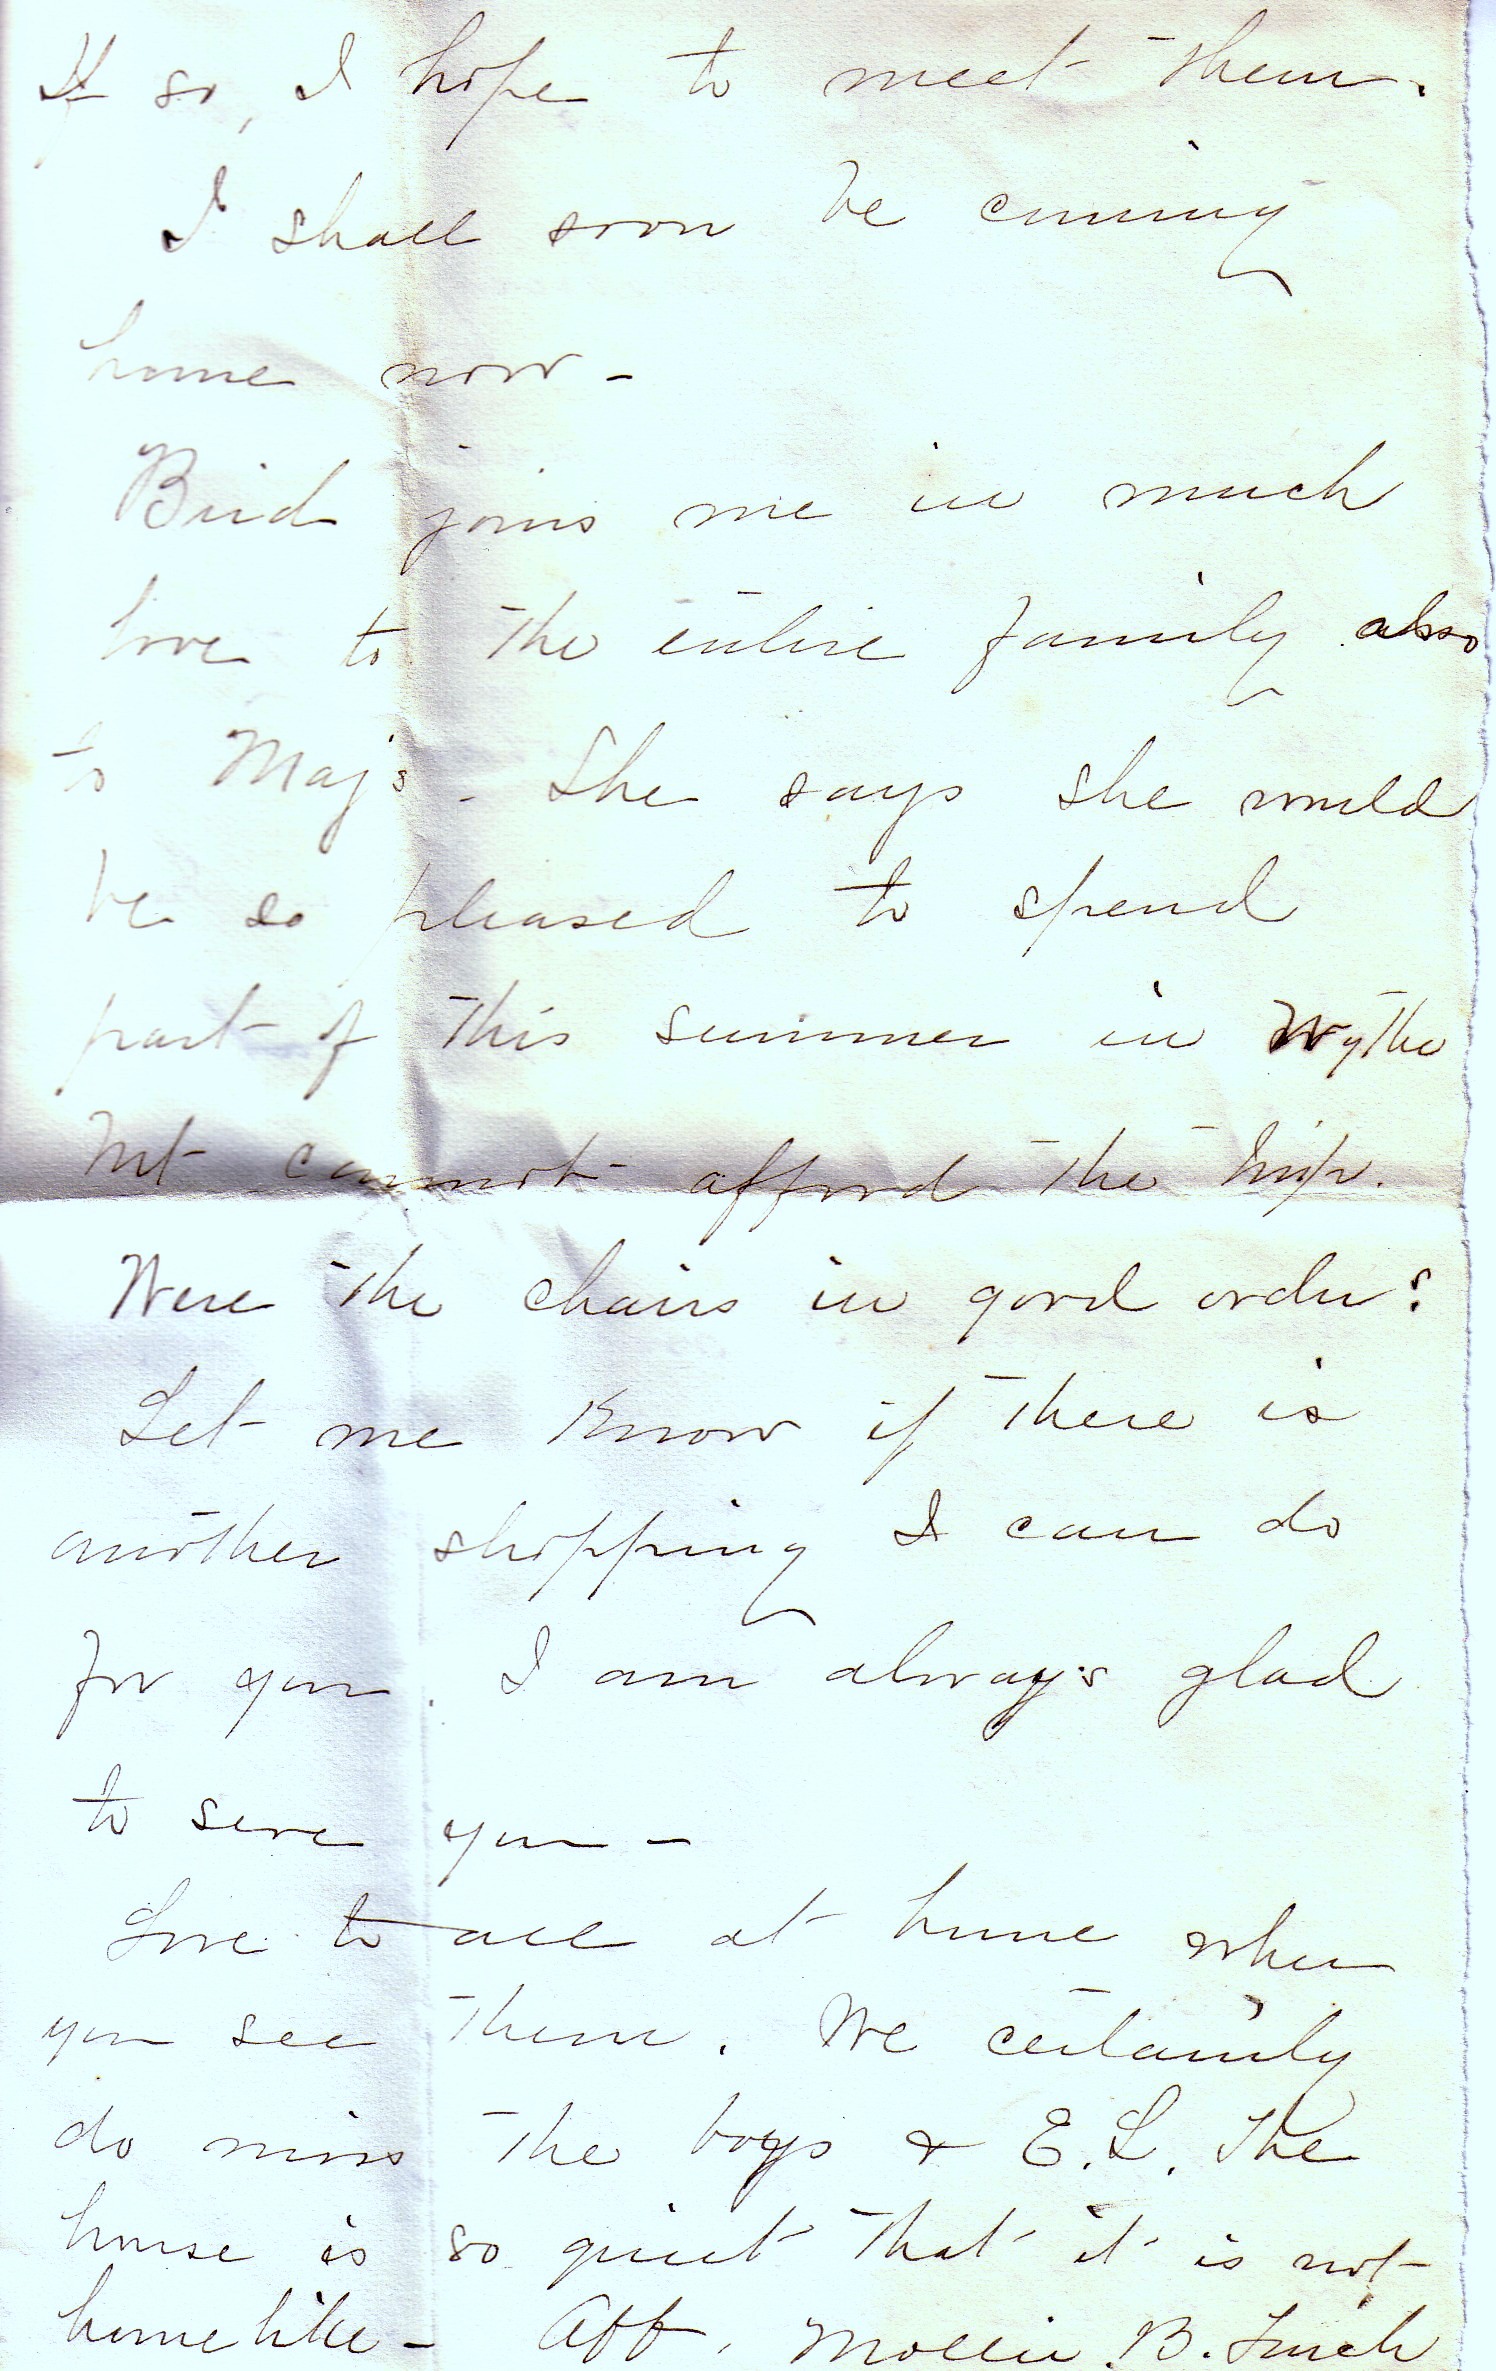 If so, I hope to meet them.
I shall soon be coming
home now -
Bird joins me in much
love to the entire family also
to Maj's - She says she would
be so pleased to spend
part of this summer in Wythe
but cannot afford the trip.
Were the chairs in good order?
Let me know if there is
another shopping I can do
for you. I am always glad
to serve you -
Love to all at home when
you see them. We certainly
do miss the boys & E. L. The
house is so quiet that it is not
homelike - Aff. Mollie B.